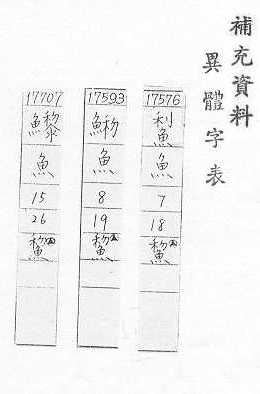 補充資料
異體字表
17576
魚
7
18
鯬
17593
魚
8
19
鯬
17707
魚
15
26
鯬